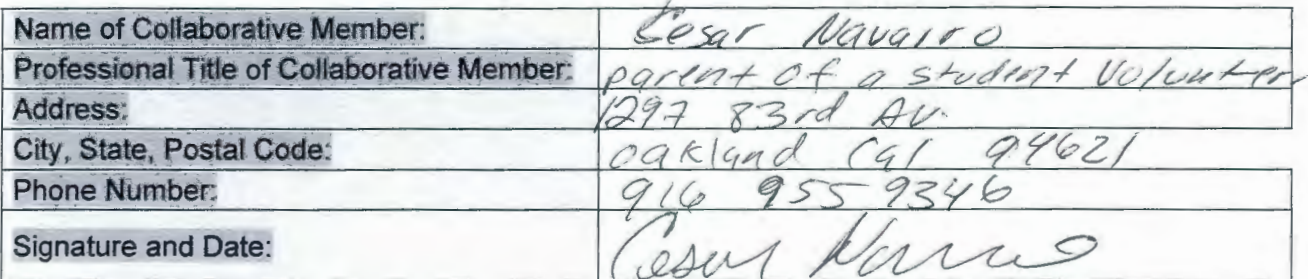 Name of Collaborative Member: Cesar Navarro
Professional Title of Collaborative Member: parent of a student Volunteer
Address: 1297 83rd Av.
City, State, Postal Code: oakland Cal 94621
Phone Number: 916 955 9346
Signature and Date: Cesar Navarro